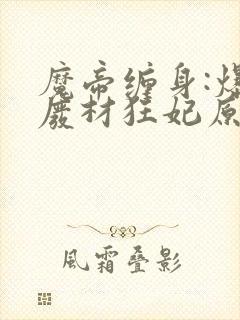 魔帝缠身:爆
废材狂妃原
風霜叠影